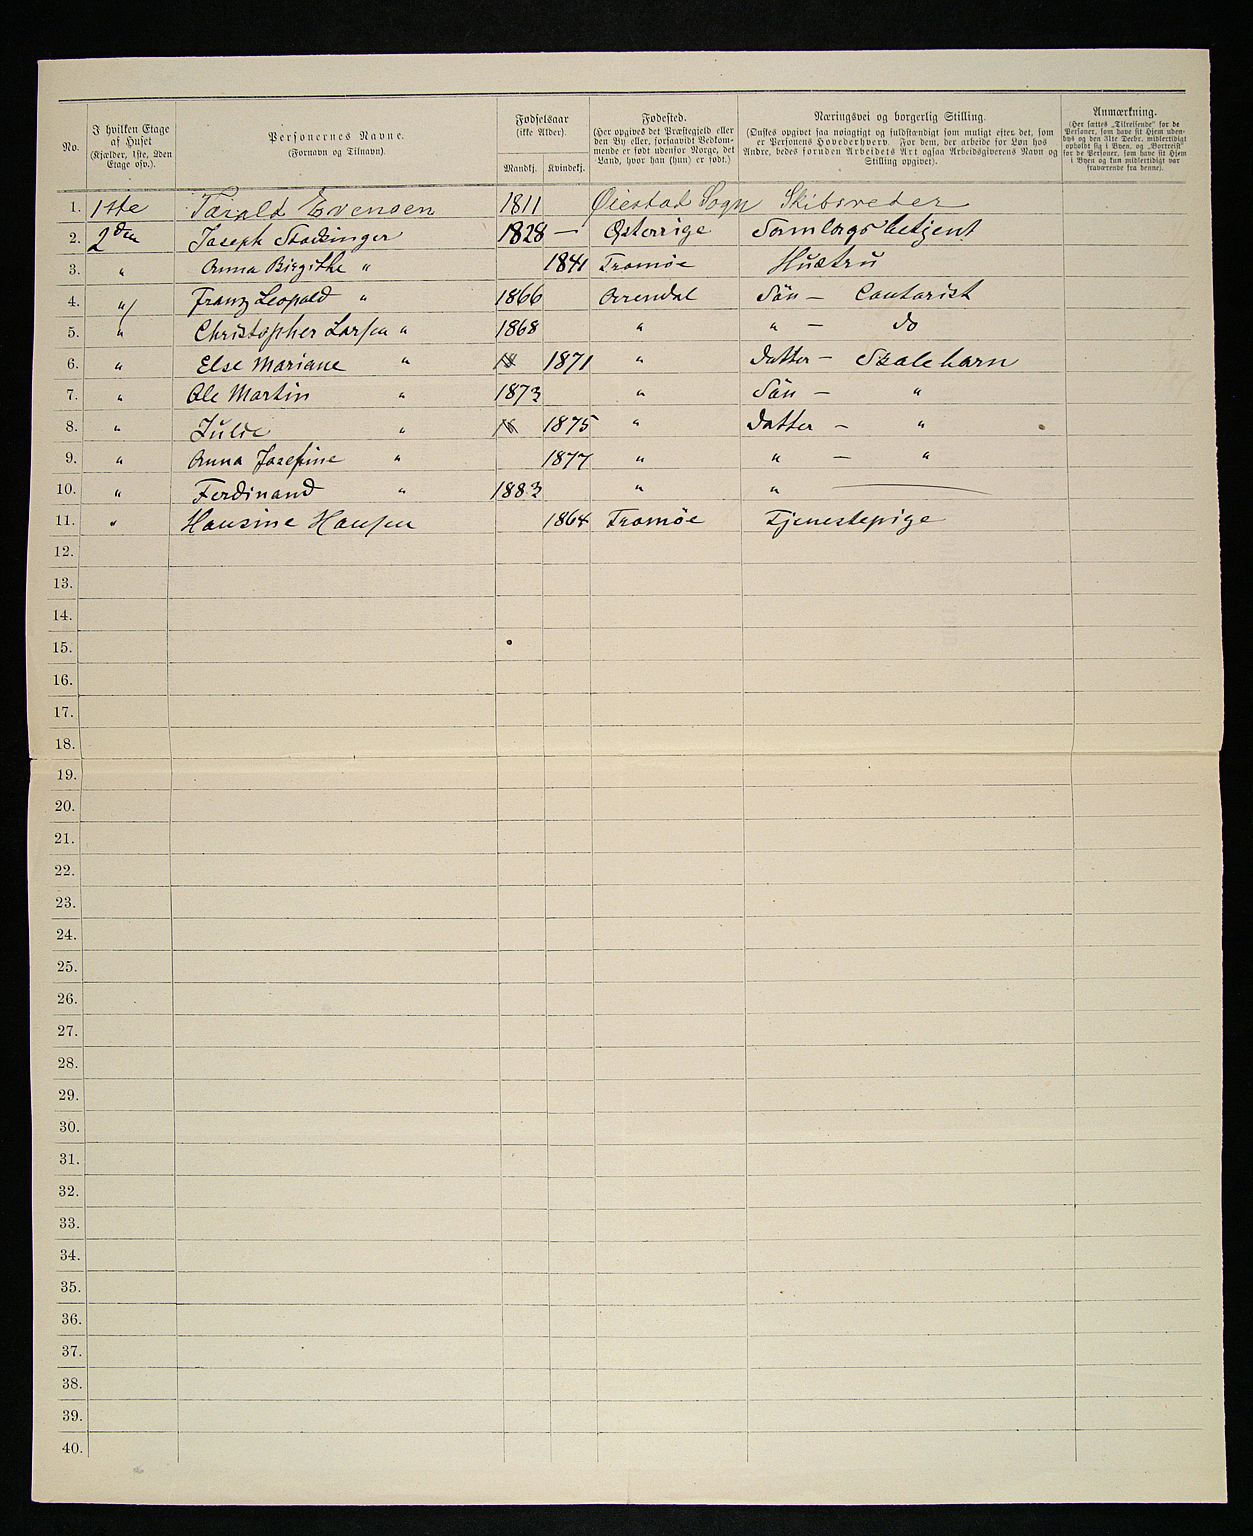 No. | I hvilken Etage af Huset (Kjælder, 1ste, 2den Etage osv.). | Personernes Navne. (Fornavn og Tilnavn). | Fødselsaar (ikke Alder). Mandkj. | Kvindekj. | Fødested. (Her opgives det Præstegjeld eller den By eller, forsaavidt Vedkommende er født udenfor Norge, det Land, hvor han (hun) er født.) | Næringsvei og borgerlig Stilling. (Ønskes opgivet saa nøiagtigt og fuldstændigt som muligt efter det, som er Personens Hovederhverv. For dem, der arbeide for Løn hos Andre, bedes foruden Arbeidets Art ogsaa Arbeidsgiverens Navn og Stilling opgivet). | Anmærkning. (Her sættes „Tilreisende“ for de Personer, som have sit Hjem udenbys og den 31te Decbr. midlertidigt opholdt sig i Byen, og „Bortreist“ for de Personer, som have sit Hjem i Byen og kun midlertidigt var fraværende fra denne).
1. 1ste Tarald Evensen 1811 Øiestad Sogn Skibsreder
2. 2den Joseph Stocksinger 1828 — Østerrige betjent
3. " Anna Birgithe " 1841 Tromøe Hustru
4. " Franz Leopold " 1866 Arendal Sön — Contorist
5. " Christopher Larsen " 1868 " " — do
6. " Else Mariane " 1871 " Datter — Skolebarn
7. " Ole Martin " 1873 " Sön — "
8. " Julie " 1875 " Datter — "
9. " Anna Josefine " 1877 " " — "
10. " Ferdinand " 1883 " " —
11. " Hansine Hansen 1864 Tromøe Tjenestepige
12.
13.
14.
15.
16.
17.
18.
19.
20.
21.
22.
23.
24.
25.
26.
27.
28.
29.
30.
31.
32.
33.
34.
35.
36.
37.
38.
39.
40.